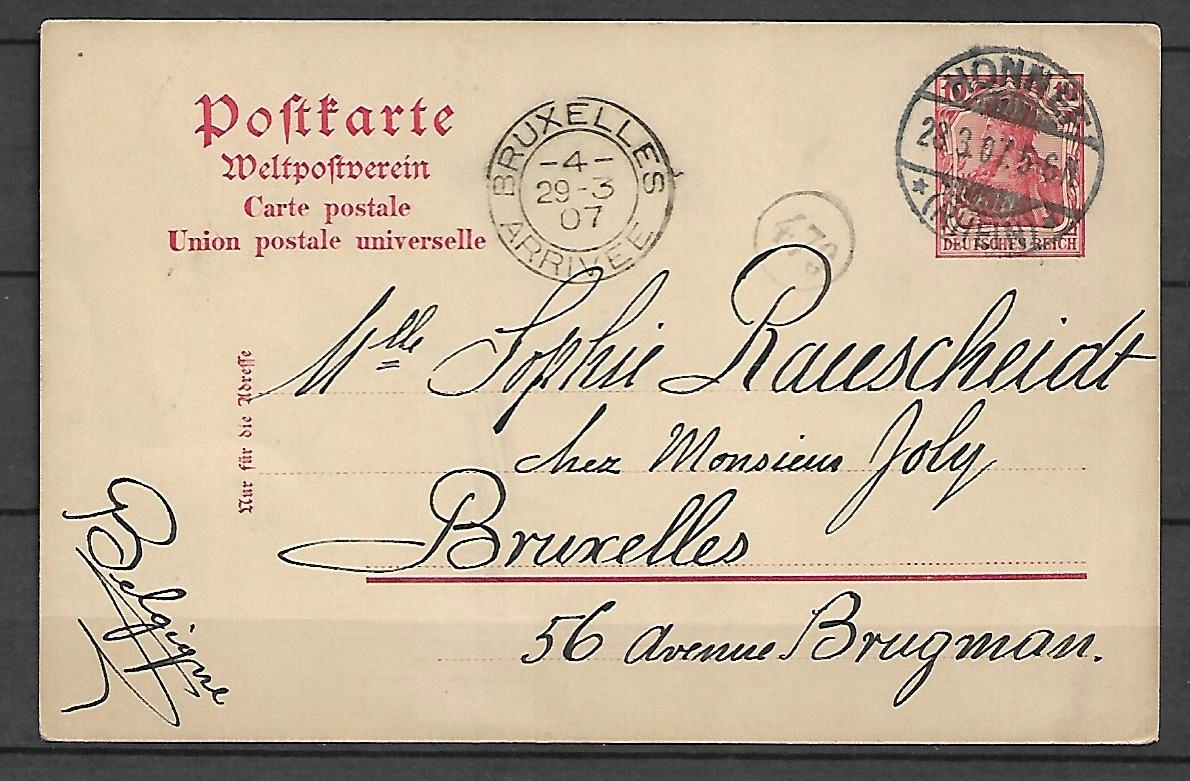 Postkarte
Weltpostverein
Carte postale
Union postale universelle
BRUXELLES
-4-
29-3
07
ARRIVÉE
HONNEF
28.3.07.5-6N
(RHEIN)
DEUTSCHES REICH
Nur für die Adresse
Mlle Sophie Rauscheidt
chez Monsieur Joly
Bruxelles
56 Avenue Brugman.
Belgique